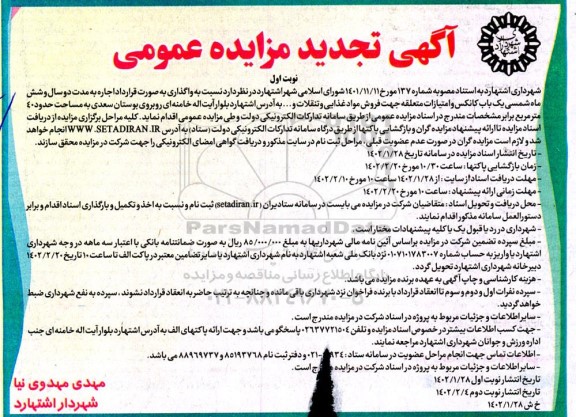 آگهی تجدید مزایده عمومی
نوبت اول
شهرداری اشتهارد به استناد مصوبه شماره ۱۳۷ مورخ ۱۴۰۱/۱۱/۱۱ شورای اسلامی شهر اشتهارد در نظر دارد نسبت به واگذاری به صورت قرارداد اجاره به مدت دو سال و شش
ماه شمسی یک باب کانکس و امتیازات متعلقه جهت فروش مواد غذایی و تنقلات و... به آدرس اشتهارد بلوار آیت اله خامنه ای روبروی بوستان سعدی به مساحت حدود ۴۰
متر مربع برابر مشخصات مندرج در اسناد مزایده عمومی از طریق سامانه تدارکات الکترونیکی دولت و طی مزایده عمومی اقدام نماید. کلیه مراحل برگزاری مزایده از دریافت
اسناد مزایده تا ارائه پیشنهاد مزایده گران و بازگشایی پاکتها از طریق درگاه سامانه تدارکات الکترونیکی دولت (ستاد) به آدرس WWW.SETADIRAN.IR انجام خواهد
شد و لازم است مزایده گران در صورت عدم عضویت قبلی، مراحل ثبت نام در سایت مذکور و دریافت گواهی امضای الکترونیکی را جهت شرکت در مزایده محقق سازند.
- تاریخ انتشار اسناد مزایده در سامانه تاریخ ۱۴۰۲/۱/۲۸
- زمان بازگشایی پاکتها : ساعت ۱۰/۳۰ مورخ ۱۴۰۲/۲/۲۰
- مهلت دریافت اسناد از سایت : از ۱۴۰۲/۱/۲۸ ساعت ۱۰ مورخ ۱۴۰۲/۲/۱۰
- مهلت زمانی ارائه پیشنهاد : ساعت ۱۰ مورخ ۱۴۰۲/۲/۲۰
- محل دریافت و تحویل اسناد : متقاضیان شرکت در مزایده می بایست در سامانه ستادیران (setadiran.ir) ثبت نام و نسبت به اخذ و تکمیل و بارگذاری اسناد اقدام و برابر
دستورالعمل سامانه مذکور اقدام نمایند.
- شهرداری در رد یا قبول یک یا کلیه پیشنهادات مختار است.
- مبلغ سپرده تضمین شرکت در مزایده براساس آئین نامه مالی شهرداریها به مبلغ ۸۵/۰۰۰/۰۰۰ ریال به صورت ضمانتنامه بانکی با اعتبار سه ماهه در وجه شهرداری
اشتهارد یا واریز به حساب شماره ۰۱۰۷۱۰۱۷۸۳۰۰۷ نزد بانک ملی شعبه اشتهارد به نام شهرداری اشتهارد یا سایر تضامین معتبر در پاکت الف تا ساعت ۱۰ تاریخ ۱۴۰۲/۲/۲۰
دبیرخانه شهرداری اشتهارد تحویل گردد.
- هزینه کارشناسی و چاپ آگهی به عهده برنده مزایده می باشد.
- سپرده نفرات اول و دوم و سوم تا انعقاد قرارداد با برنده فراخوان نزد شهرداری باقی مانده و چنانچه به ترتیب حاضر به انعقاد قرارداد نشوند، سپرده به نفع شهرداری ضبط
خواهد گردید.
- سایر اطلاعات و جزئیات مربوط به پروژه در اسناد شرکت در مزایده مندرج است.
- جهت کسب اطلاعات بیشتر در خصوص اسناد مزایده و تلفن ۰۲۶۳۷۷۲۱۵۰۴ پاسخگو می باشد و جهت ارائه پاکتهای الف به آدرس اشتهارد بلوار آیت اله خامنه ای جنب
اداره ورزش و جوانان شهرداری اشتهارد مراجعه نمایند.
- اطلاعات تماس جهت انجام مراحل عضویت در سامانه ستاد : ۰۲۱-۴۱۹۳۴ و دفتر ثبت نام ۸۵۱۹۳۷۶۸ و ۸۸۹۶۹۷۳۷ می باشد.
- سایر اطلاعات و جزئیات مربوط به پروژه در اسناد شرکت در مزایده مندرج است.
تاریخ انتشار نوبت اول ۱۴۰۲/۱/۲۸
تاریخ انتشار نوبت دوم ۱۴۰۲/۲/۴
خ ش ۱۴۰۲/۱/۲۸
مهدی مهدوی نیا
شهردار اشتهارد
ParsNamadData
پایگاه اطلاع رسانی مناقصه و مزایده